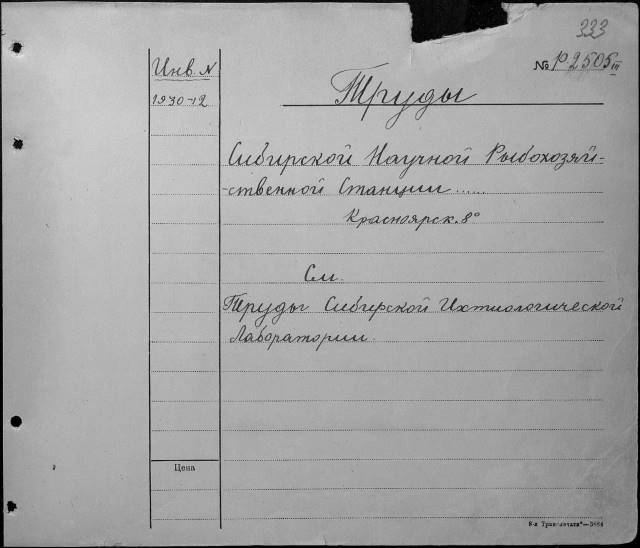 333
№ Р2505 III
Инв. N
1930-12
Труды
Сибирской Научной Рыбохозяй-
-ственной Станции......
Красноярск. 8°
См.
Труды Сибирской Ихтиологической
Лаборатории.
Цена